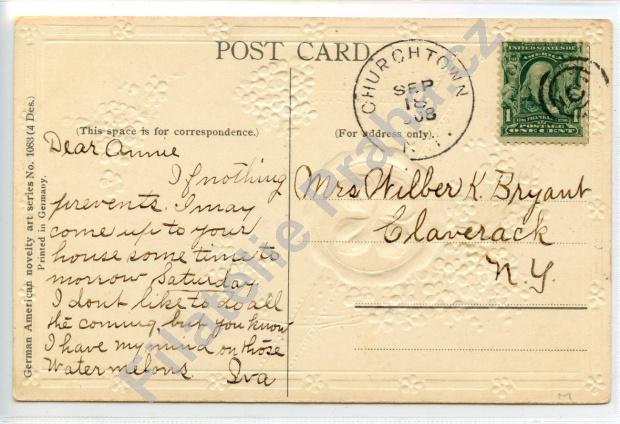 POST CARD
CHURCHTOWN
SEP
18
N.Y.
UNITED STATES OF
AMERICA
1 FRANKLIN 1
POSTAGE
ONE CENT
(This space is for correspondence.)
(For address only).
German American novelty art series No. 1083 (4 Des.)
Printed in Germany.
Dear Annie
If nothing
prevents. I may
come up to your
house some time to
morrow Saturday
I dont like to do all
the coming, but you know
I have my mind on those
Watermelons Iva
Mrs Wilber K. Bryant
Claverack
N.Y.
Filatelie Praha.cz
M